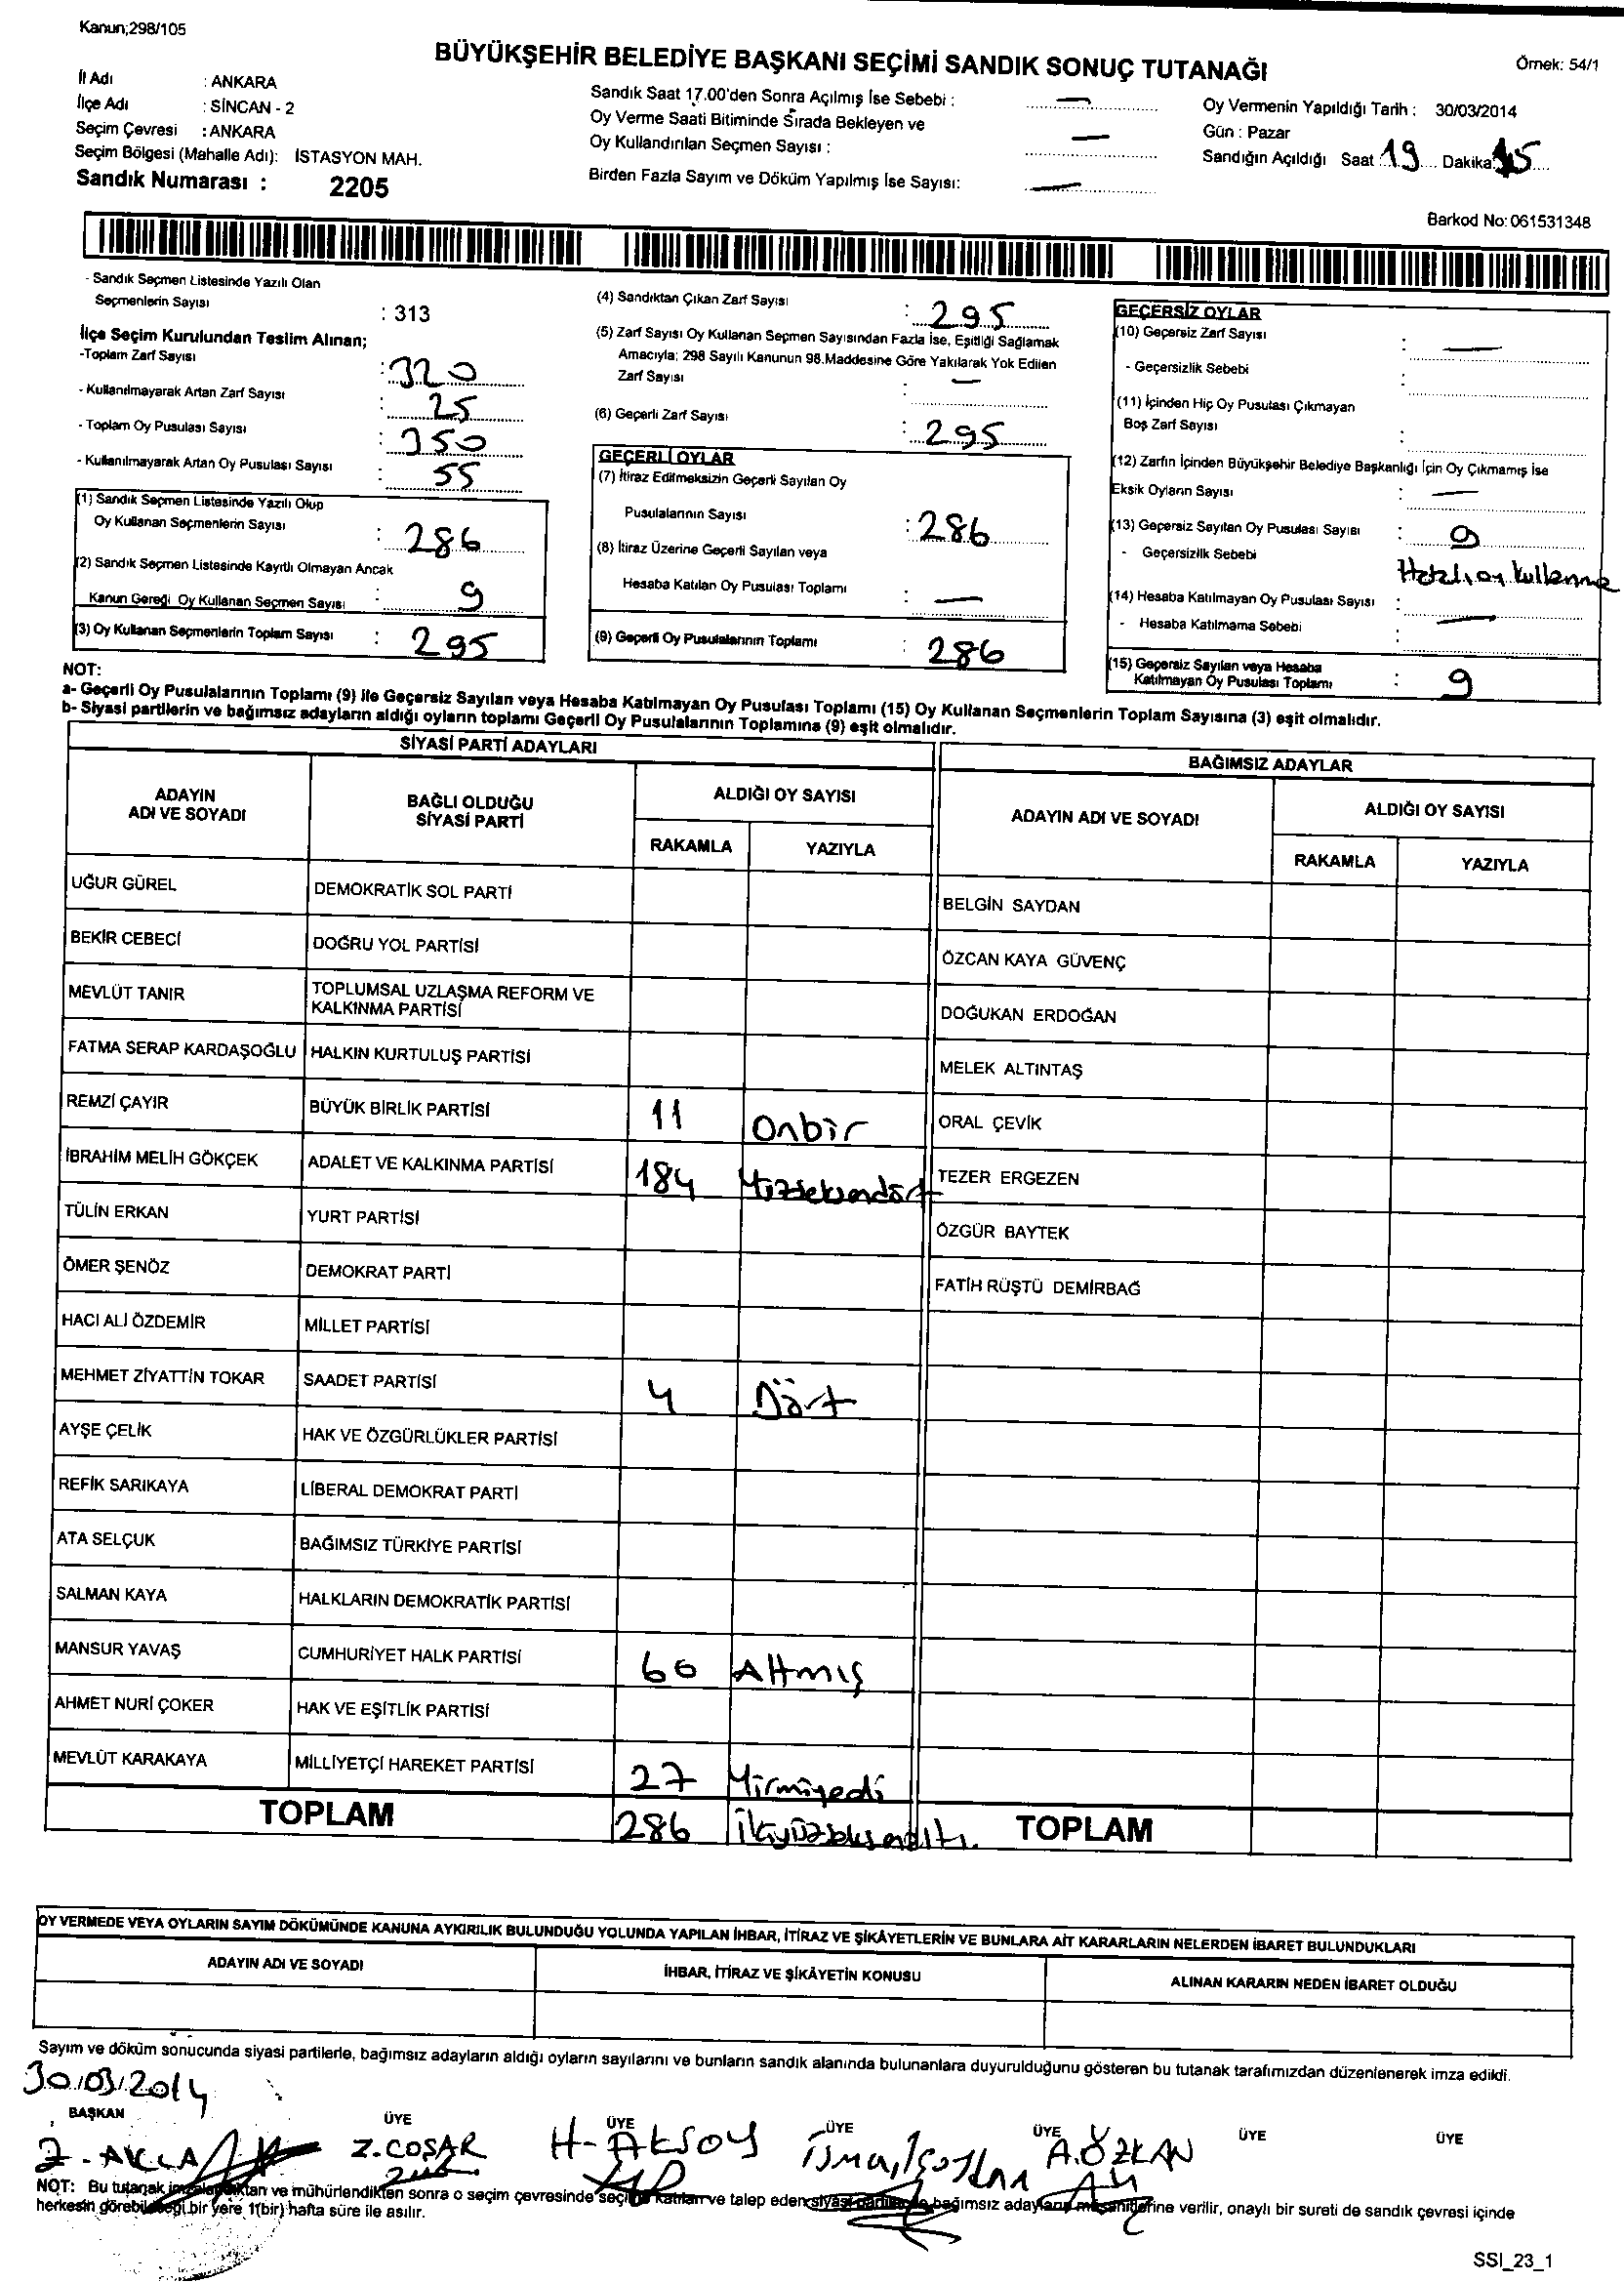 Kanun;298/105
BÜYÜKŞEHİR BELEDİYE BAŞKANI SEÇİMİ SANDIK SONUÇ TUTANAĞI
Örnek: 54/1
İl Adı : ANKARA
İlçe Adı : SİNCAN - 2
Seçim Çevresi : ANKARA
Seçim Bölgesi (Mahalle Adı): İSTASYON MAH.
Sandık Numarası : 2205
Sandık Saat 17.00'den Sonra Açılmış İse Sebebi : —
Oy Verme Saati Bitiminde Sırada Bekleyen ve
Oy Kullandırılan Seçmen Sayısı : —
Birden Fazla Sayım ve Döküm Yapılmış İse Sayısı: —
Oy Vermenin Yapıldığı Tarih : 30/03/2014
Gün : Pazar
Sandığın Açıldığı Saat : 19 Dakika
Barkod No: 061531348
- Sandık Seçmen Listesinde Yazılı Olan
Seçmenlerin Sayısı : 313
İlçe Seçim Kurulundan Teslim Alınan;
-Toplam Zarf Sayısı : 320
- Kullanılmayarak Artan Zarf Sayısı : 25
- Toplam Oy Pusulası Sayısı : 350
- Kullanılmayarak Artan Oy Pusulası Sayısı : 55
(1) Sandık Seçmen Listesinde Yazılı Olup
Oy Kullanan Seçmenlerin Sayısı : 286
(2) Sandık Seçmen Listesinde Kayıtlı Olmayan Ancak
Kanun Gereği Oy Kullanan Seçmen Sayısı : 9
(3) Oy Kullanan Seçmenlerin Toplam Sayısı : 295
(4) Sandıktan Çıkan Zarf Sayısı : 295
(5) Zarf Sayısı Oy Kullanan Seçmen Sayısından Fazla İse, Eşitliği Sağlamak
Amacıyla; 298 Sayılı Kanunun 98.Maddesine Göre Yakılarak Yok Edilen
Zarf Sayısı : —
(6) Geçerli Zarf Sayısı : 295
GEÇERLİ OYLAR
(7) İtiraz Edilmeksizin Geçerli Sayılan Oy
Pusulalarının Sayısı : 286
(8) İtiraz Üzerine Geçerli Sayılan veya
Hesaba Katılan Oy Pusulası Toplamı : —
(9) Geçerli Oy Pusulalarının Toplamı : 286
GEÇERSİZ OYLAR
(10) Geçersiz Zarf Sayısı : —
- Geçersizlik Sebebi :
(11) İçinden Hiç Oy Pusulası Çıkmayan
Boş Zarf Sayısı :
(12) Zarfın İçinden Büyükşehir Belediye Başkanlığı İçin Oy Çıkmamış İse
Eksik Oyların Sayısı : —
(13) Geçersiz Sayılan Oy Pusulası Sayısı : 9
- Geçersizlik Sebebi Hatalı oy kullanma
(14) Hesaba Katılmayan Oy Pusulası Sayısı : —
- Hesaba Katılmama Sebebi :
(15) Geçersiz Sayılan veya Hesaba
Katılmayan Oy Pusulası Toplamı : 9
NOT:
a- Geçerli Oy Pusulalarının Toplamı (9) ile Geçersiz Sayılan veya Hesaba Katılmayan Oy Pusulası Toplamı (15) Oy Kullanan Seçmenlerin Toplam Sayısına (3) eşit olmalıdır.
b- Siyasi partilerin ve bağımsız adayların aldığı oyların toplamı Geçerli Oy Pusulalarının Toplamına (9) eşit olmalıdır.
SİYASİ PARTİ ADAYLARI
ADAYIN ADI VE SOYADI
BAĞLI OLDUĞU SİYASİ PARTİ
ALDIĞI OY SAYISI
RAKAMLA YAZIYLA
UĞUR GÜREL DEMOKRATİK SOL PARTİ
BEKİR CEBECİ DOĞRU YOL PARTİSİ
MEVLÜT TANIR TOPLUMSAL UZLAŞMA REFORM VE
KALKINMA PARTİSİ
FATMA SERAP KARDAŞOĞLU HALKIN KURTULUŞ PARTİSİ
REMZİ ÇAYIR BÜYÜK BİRLİK PARTİSİ 11 Onbir
İBRAHİM MELİH GÖKÇEK ADALET VE KALKINMA PARTİSİ 184 Yüzseksendört
TÜLİN ERKAN YURT PARTİSİ
ÖMER ŞENÖZ DEMOKRAT PARTİ
HACI ALİ ÖZDEMİR MİLLET PARTİSİ
MEHMET ZİYATTİN TOKAR SAADET PARTİSİ 4 Dört
AYŞE ÇELİK HAK VE ÖZGÜRLÜKLER PARTİSİ
REFİK SARIKAYA LİBERAL DEMOKRAT PARTİ
ATA SELÇUK BAĞIMSIZ TÜRKİYE PARTİSİ
SALMAN KAYA HALKLARIN DEMOKRATİK PARTİSİ
MANSUR YAVAŞ CUMHURİYET HALK PARTİSİ 60 Altmış
AHMET NURİ ÇOKER HAK VE EŞİTLİK PARTİSİ
MEVLÜT KARAKAYA MİLLİYETÇİ HAREKET PARTİSİ 27 Yirmiyedi
TOPLAM 286 İkiyüzseksenaltı.
BAĞIMSIZ ADAYLAR
ADAYIN ADI VE SOYADI
ALDIĞI OY SAYISI
RAKAMLA YAZIYLA
BELGİN SAYDAN
ÖZCAN KAYA GÜVENÇ
DOĞUKAN ERDOĞAN
MELEK ALTINTAŞ
ORAL ÇEVİK
TEZER ERGEZEN
ÖZGÜR BAYTEK
FATİH RÜŞTÜ DEMİRBAĞ
TOPLAM
OY VERMEDE VEYA OYLARIN SAYIM DÖKÜMÜNDE KANUNA AYKIRILIK BULUNDUĞU YOLUNDA YAPILAN İHBAR, İTİRAZ VE ŞİKÂYETLERİN VE BUNLARA AİT KARARLARIN NELERDEN İBARET BULUNDUKLARI
ADAYIN ADI VE SOYADI
İHBAR, İTİRAZ VE ŞİKÂYETİN KONUSU
ALINAN KARARIN NEDEN İBARET OLDUĞU
Sayım ve döküm sonucunda siyasi partilerle, bağımsız adayların aldığı oyların sayılarını ve bunların sandık alanında bulunanlara duyurulduğunu gösteren bu tutanak tarafımızdan düzenlenerek imza edildi.
30/03/2014
BAŞKAN ÜYE ÜYE ÜYE ÜYE ÜYE ÜYE
Z.COŞAR H-AKSOY A.ÖZKAN
NOT: Bu tutanak imzalandıktan ve mühürlendikten sonra o seçim çevresinde seçime katılan ve talep eden siyasi partilerle bağımsız adayların müşahitlerine verilir, onaylı bir sureti de sandık çevresi içinde
herkesin görebileceği bir yere 1(bir) hafta süre ile asılır.
SSI_23_1